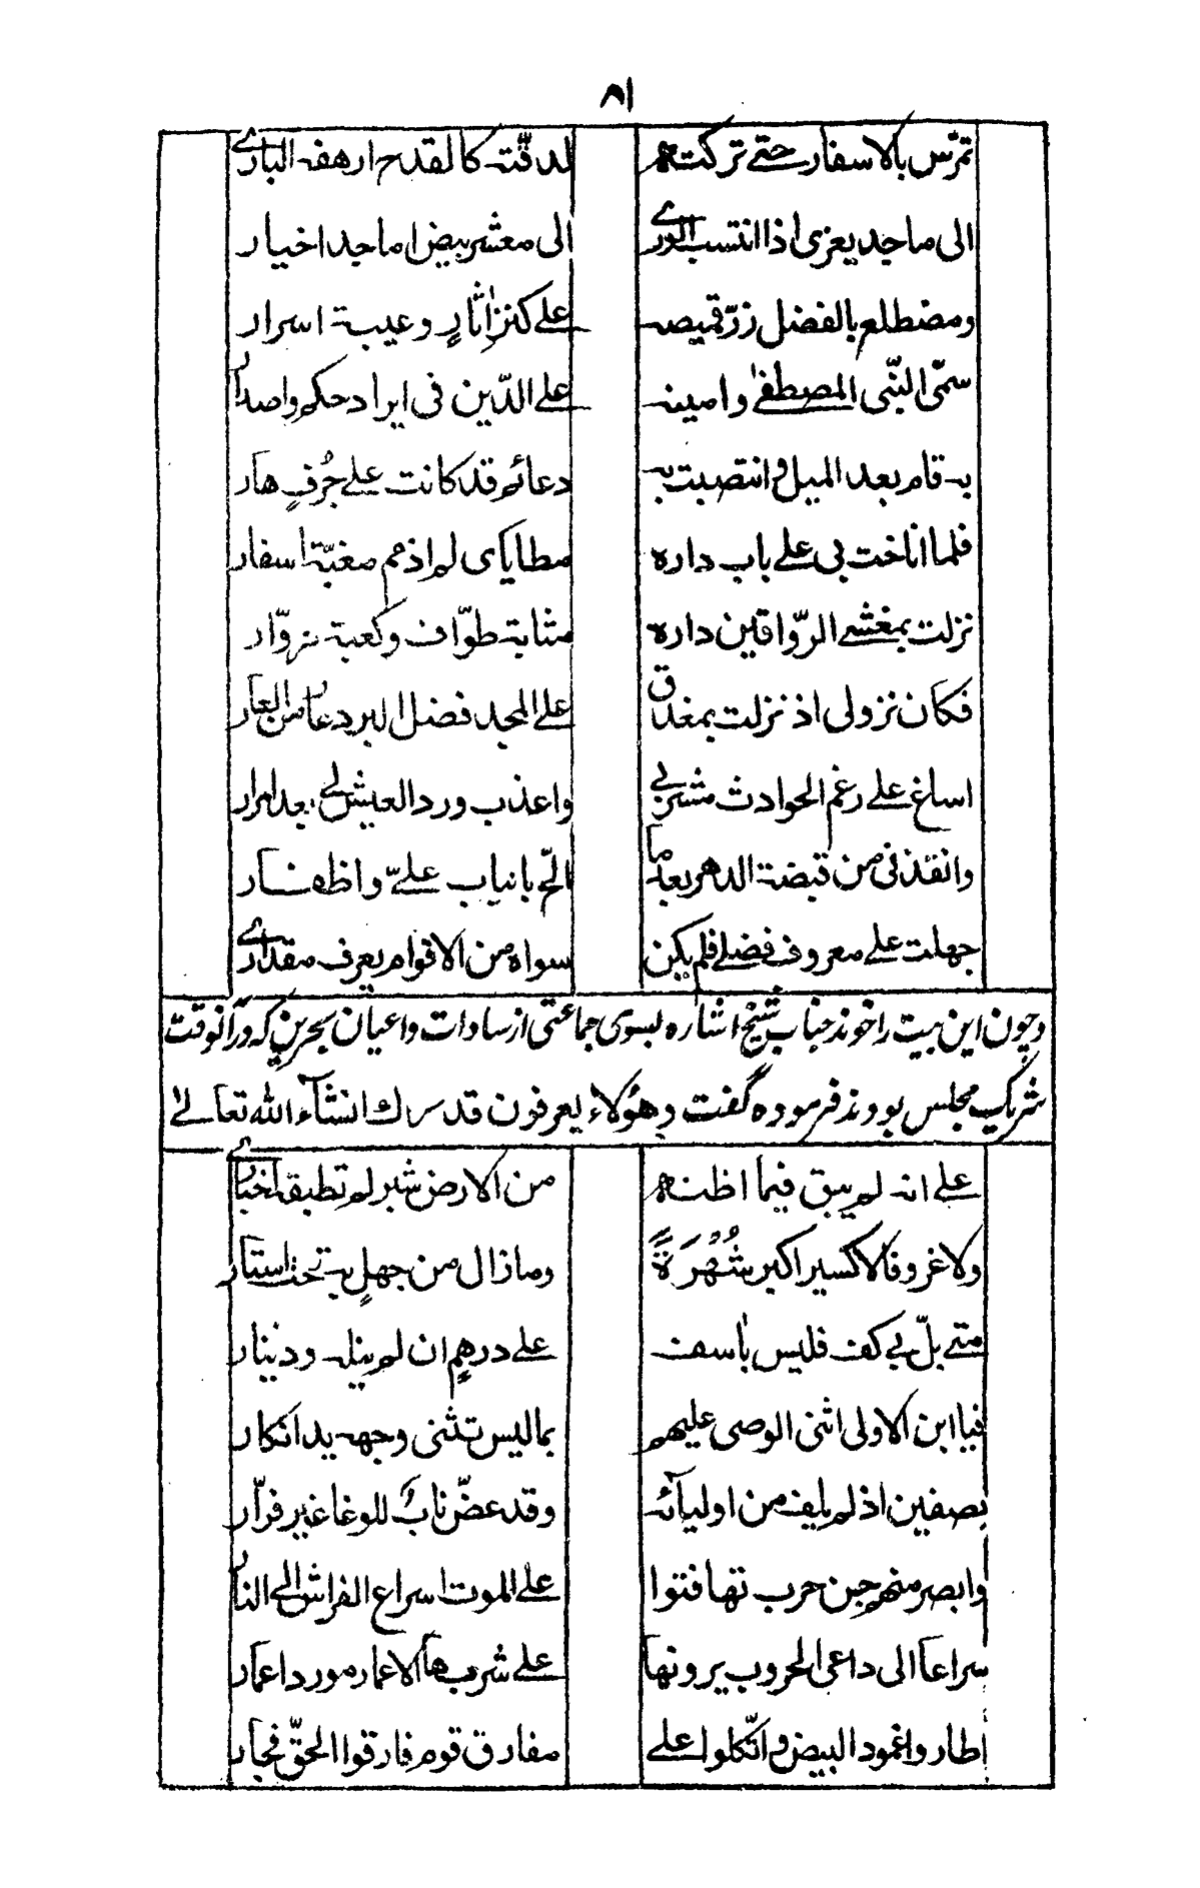 ٨١
تمرّس بالاسفار حتى تركنه لدقّته كالقدح ارهفه الباري
الى ماجد يعزى اذا انتسب الورى الى معشر بيض اماجد اخيار
ومضطلع بالفضل زرّ قميصه على كنز اٰثارٍ وعيبة اسرار
سمّى النبّى المصطفٰى وامينه على الدّين فى ايراد حكم واصدار
به قام بعد الميل وانتصبت به دعائم قد كانت على جُرُفٍ هار
فلما اناخت بى على باب داره مطاياى لم اذمم مغبّة اسفار
نزلت بمغشى الرّواقين داره مثابة طوّاف وكعبة زوّار
فكان نزولى اذ نزلت بمغدق على المجد فضل البرد عار من العار
اساغ على رغم الحوادث مشربي واعذب ورد العيش لى بعد امرار
وانقذنى من قبضة الدهر بعد ما الحّ بانياب علىّ واظفار
جهلت على معروف فضلى فلم يكن سواه من الاقوام يعرف مقداري
وچون اين بيت را خوند جناب شيخ اشاره بسوى جماعتى از سادات واعيان بحرين كه در آنوقت
شريك مجلس بودند فرموده گفت وهؤلاء يعرفون قدرك انشآء الله تعالى
على انه لم يبق فيما اظنه من الارض شبر لم تطبقه اخباري
ولا غرو فالاكسير اكبر شُهْرَةً وما زال من جهلٍ به تحت استار
متى بلّ بى كف فليس باٰسف على درهمٍ ان لم ينله ودينار
فيا ابن الاولى اثنى الوصى عليهم بما ليس تثنى وجهه يد انكار
بصفين اذ لم يلف من اوليآئه وقد عضّ نابٌ للوغا غير فرّار
وابصر منهم جن حرب تهافتوا على الموت اسراع الفراش الى النار
سراعا الى داعى الحروب يرونها على شربها الاعمار مورد اعمار
اطاروا غمود البيض واتّكلوا على مفارق قوم فارقوا الحقّ فجار